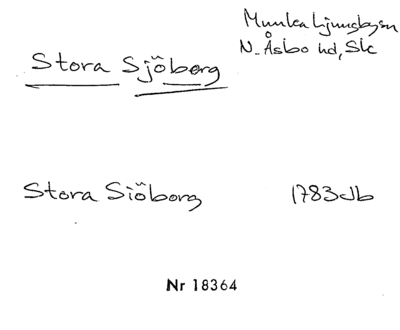 Munka Ljungbysn
N. Åsbo hd, Slc
Stora Sjöberg
Stora Siöborg 1783Jb
Nr 18364